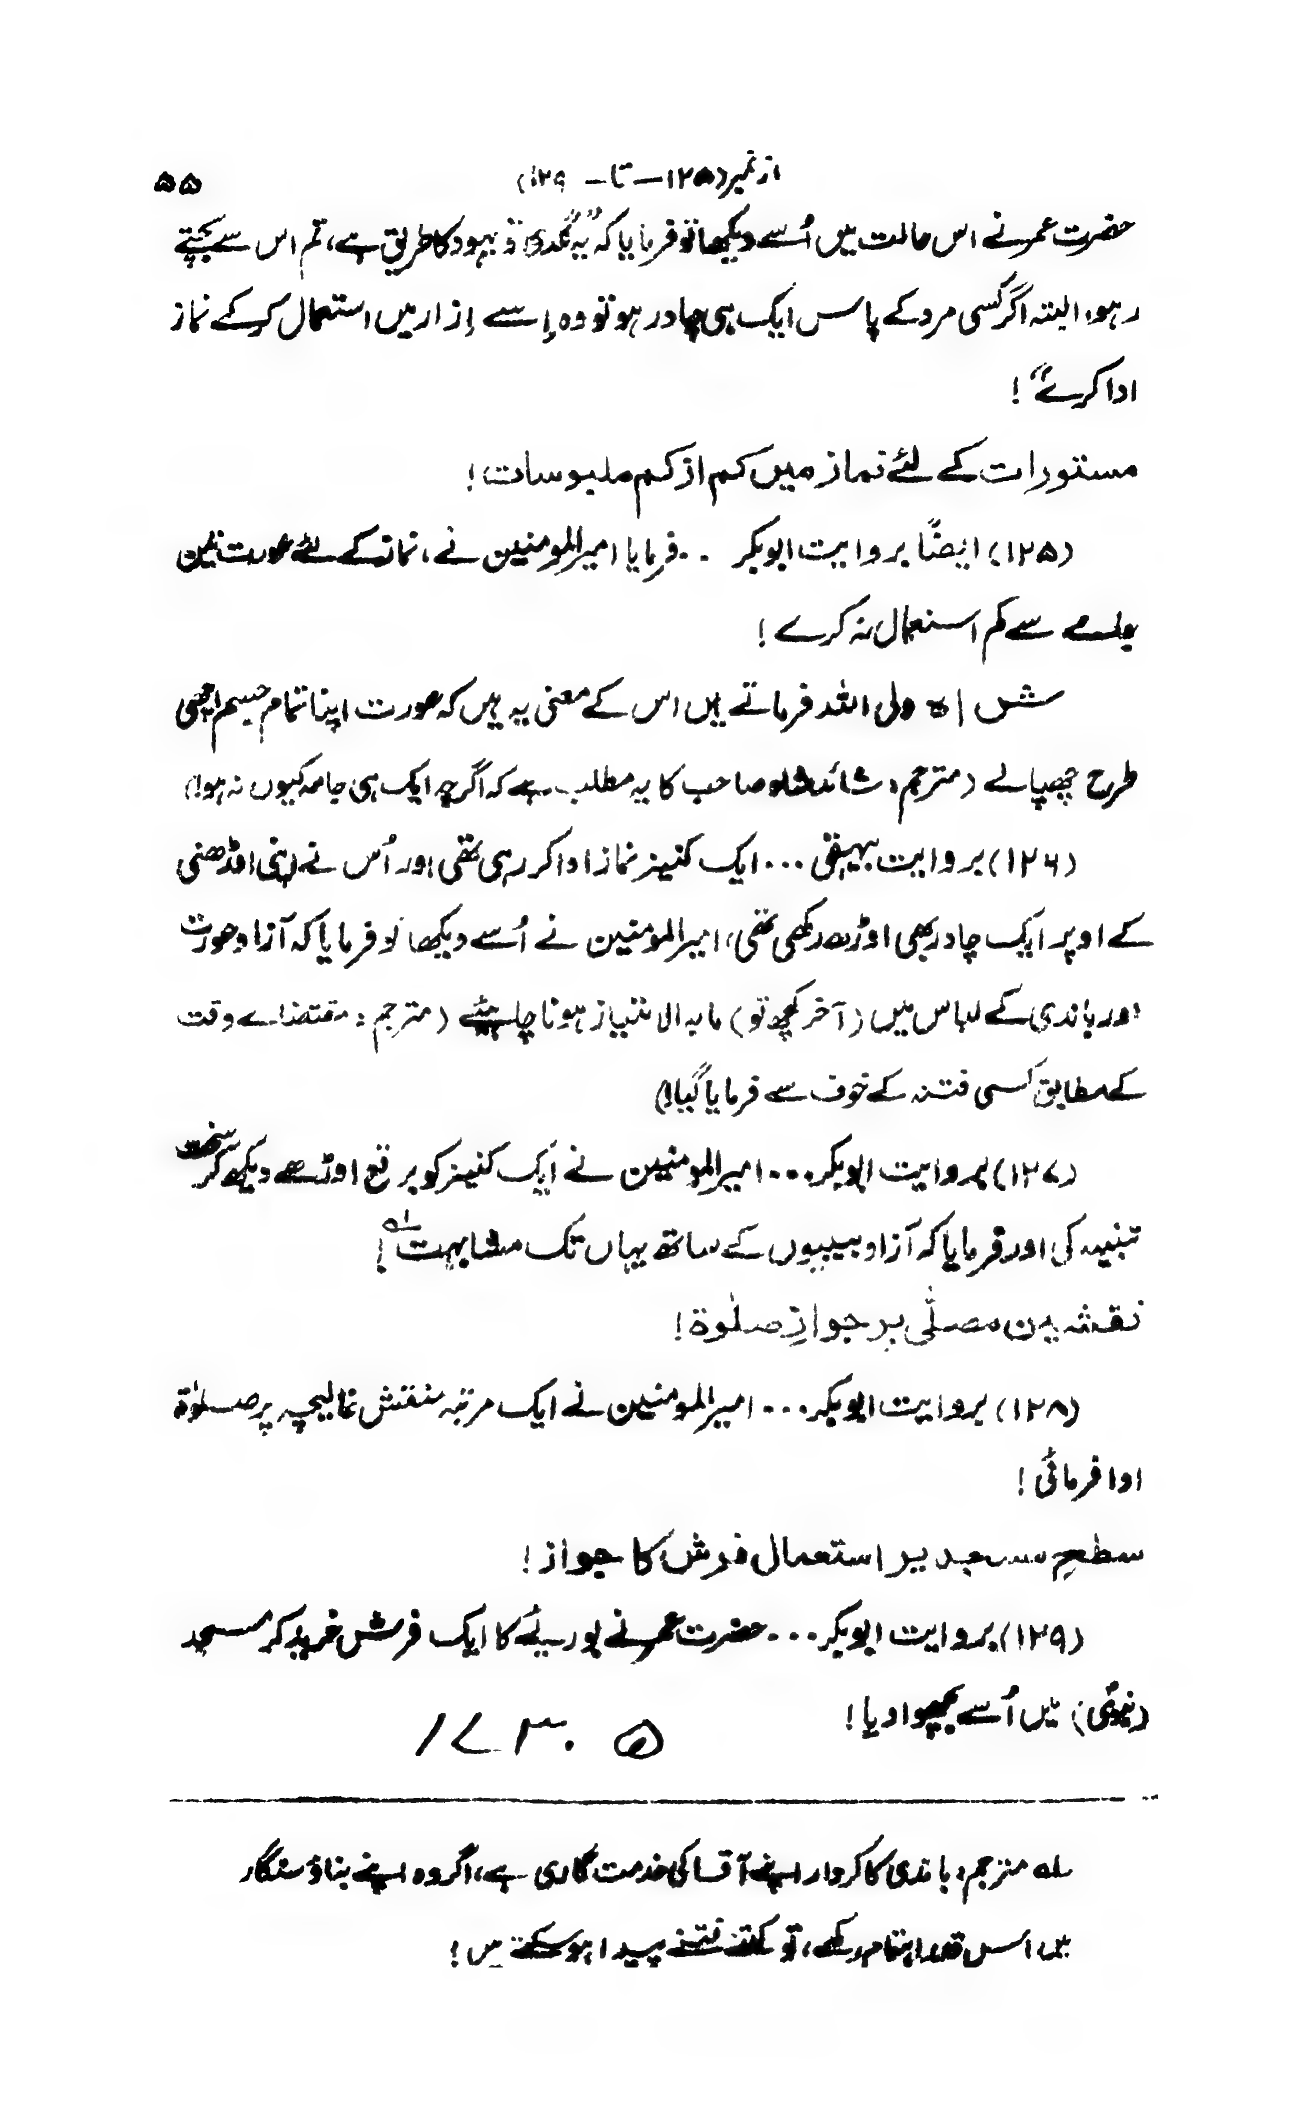 از نمبر (۱۲۵ — تا — ۱۲۹) ۵۵
حضرت عمر نے اس حالت میں اُسے دیکھا تو فرمایا کہ "یہ" یہود کا طریق ہے، تم اس سے بچتے
رہو، البتہ اگر کسی مرد کے پاس ایک ہی چادر ہو تو وہ اِسے اِزار میں استعمال کر کے نماز
ادا کرے"!
مستورات کے لئے نماز میں کم از کم ملبوسات!
(۱۲۵) ایضًا بروایت ابوبکر ... فرمایا امیرالمومنین نے، نماز کے لئے عورت تین
سے کم استعمال نہ کرے!
شاہ ولی اللہ فرماتے ہیں اس کے معنی یہ ہیں کہ عورت اپنا تمام جسم اچھی
طرح چھپا لے (مترجم: شائد شاہ صاحب کا یہ مطلب ہے کہ اگرچہ ایک ہی جامہ کیوں نہ ہو!)
(۱۲۶) بروایت بیہقی ... ایک کنیز نماز ادا کر رہی تھی اور اُس نے اپنی اوڑھنی
کے اوپر ایک چادر بھی اوڑھ رکھی تھی، امیرالمومنین نے اُسے دیکھا تو فرمایا کہ آزاد عورت
اور باندی کے لباس میں (آخر کچھ تو) مابہ الامتیاز ہونا چاہیئے (مترجم: مقتضائے وقت
کے مطابق کسی فتنہ کے خوف سے فرمایا گیا!)
(۱۲۷) بروایت ابوبکر ... امیرالمومنین نے ایک کنیز کو برقع اوڑھے دیکھ کر سخت
تنبیہ کی اور فرمایا کہ آزاد بیبیوں کے ساتھ یہاں تک مشابہت ؎۱!
نقشین مصلّٰی پر جوازِ صلٰوۃ!
(۱۲۸) بروایت ابوبکر ... امیرالمومنین نے ایک مرتبہ منقش غالیچہ پر صلٰوۃ
ادا فرمائی!
سطحِ مسجد پر استعمال فرش کا جواز!
(۱۲۹) بروایت ابوبکر ... حضرت عمر نے بوریئے کا ایک فرش خرید کر مسجد
(نبویؐ) میں اُسے بچھوا دیا!
۱۷۳۰۵
؎۱ مترجم: باندی کا کردار اپنے آقا کی خدمت گاری ہے، اگر وہ اپنے بناؤ سنگار
میں اس قدر اہتمام رکھے، تو کتنے فتنے پیدا ہو سکتے ہیں!